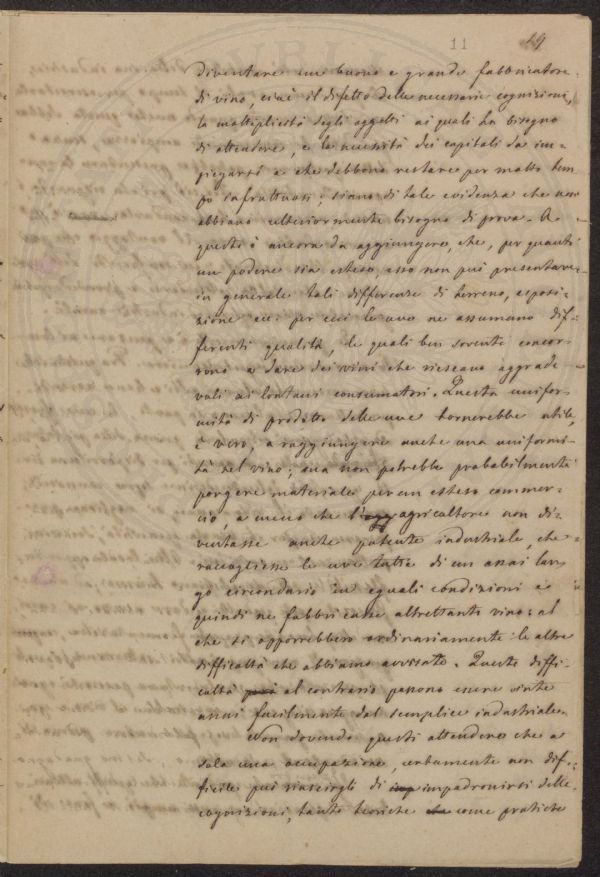 11 19
diventare un buono e grande fabbricatore
di vino, cioè il difetto delle necessarie cognizioni,
la molteplicità degli oggetti ai quali ha bisogno
di attendere, e la necessità dei capitali da im-
piegarsi e che debbono restare per molto tem-
po infruttuosi; siano di tale evidenza che non
abbiano ulteriormente bisogno di prova. A
questo è ancora da aggiungere, che, per quanto
un podere sia esteso, esso non può presentare
in generale tali differenze di terreno, esposi-
zione ecc: per cui le uve ne assumano dif-
ferenti qualità, le quali ben sovente concor-
rono a dare dei vini che riescano aggrade-
voli ai lontani consumatori. Questa unifor-
mità di prodotto delle uve tornerebbe utile,
è vero, a raggiungere anche una uniformi-
tà nel vino; ma non potrebbe probabilmente
porgere materiale per un esteso commer-
cio, a meno che l'agricoltore non di-
ventasse anche potente industriale, che
raccogliesse le uve tutte di un assai lar-
go circondario in eguali condizioni e
quindi ne fabbricasse altrettanto vino: al
che si opporrebbero ordinariamente le altre
difficoltà che abbiamo avvisate. Queste diffi-
coltà al contrario possono essere vinte
assai facilmente dal semplice industriale.
Non dovendo questi attendere che a
sola una occupazione, certamente non dif-
ficile può riuscirgli di impadronirsi delle
cognizioni, tanto teoriche come pratiche